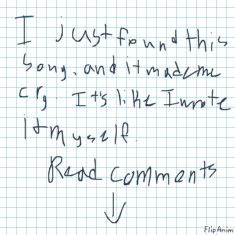 I just found this
song. and it made me
cry. It's like I wrote
it myself.
Read comments
FlipAnim